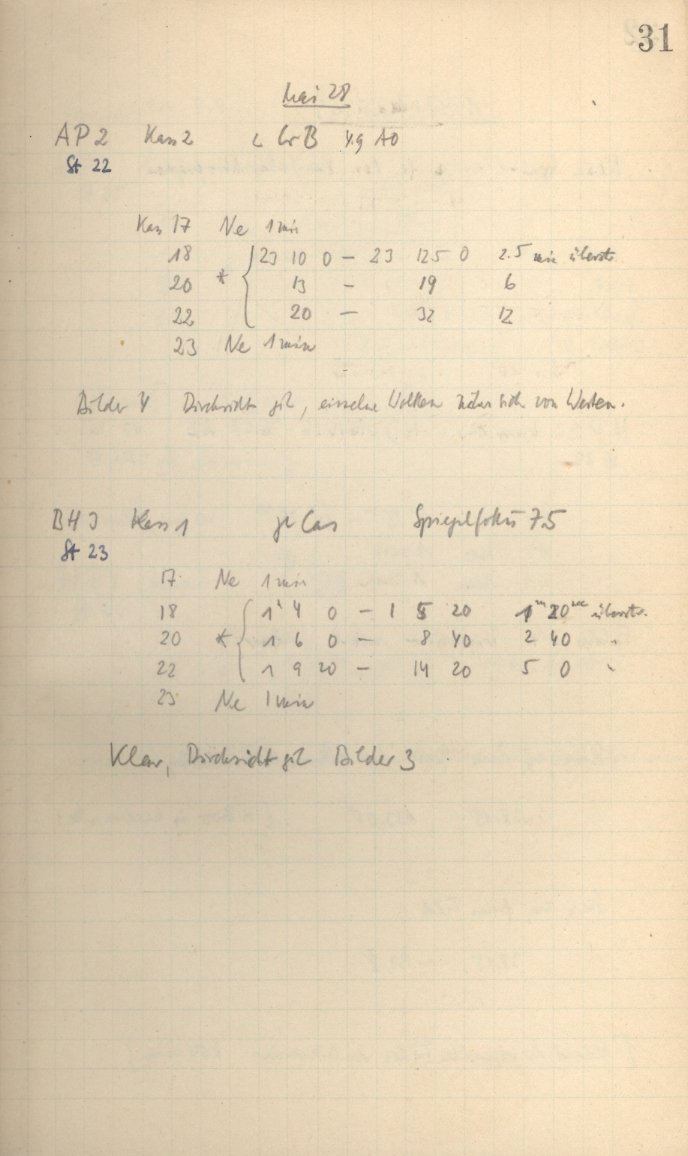 31
Mai 28
AP2 Kass 2 ι CrB 4.9 A0
St 22
Kass 17 Ne 1 min
18 23 10 0 — 23 12 5 0 2.5 min überst.
20 * 13 — 19 6
22 20 — 32 12
23 Ne 1 min
Bilder 4 Durchsicht gut, einzelne Wolken nähern sich von Westen.
BH3 Kass 1 γ Cas Spiegelfokus 7.5
St 23
17 Ne 1 min
18 1h 4 0 — 1 5 20 1m 20sec überst.
20 * 1 6 0 — 8 40 2 40 "
22 1 9 20 — 14 20 5 0 "
23 Ne 1 min
Klar, Durchsicht gut Bilder 3